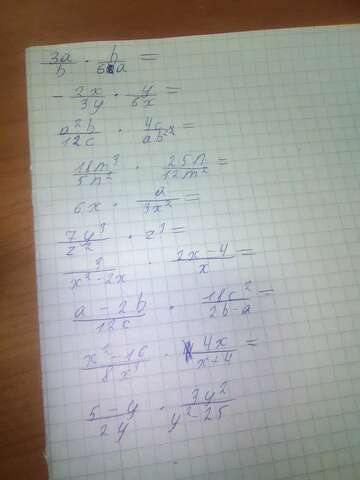 3a/b · b/6a =
- 2x/3y · y/6x =
a²b/12c · 4c/ab² =
18m³/5n² · 25n/12m² =
6x · a/3x² =
7y³/z² · z³ =
3/x²-2x · 2x-4/x =
a-2b/12c · 18c²/2b-a =
x²-16/8x³ · 4x/x+4 =
5-y/2y · 3y²/y²-25